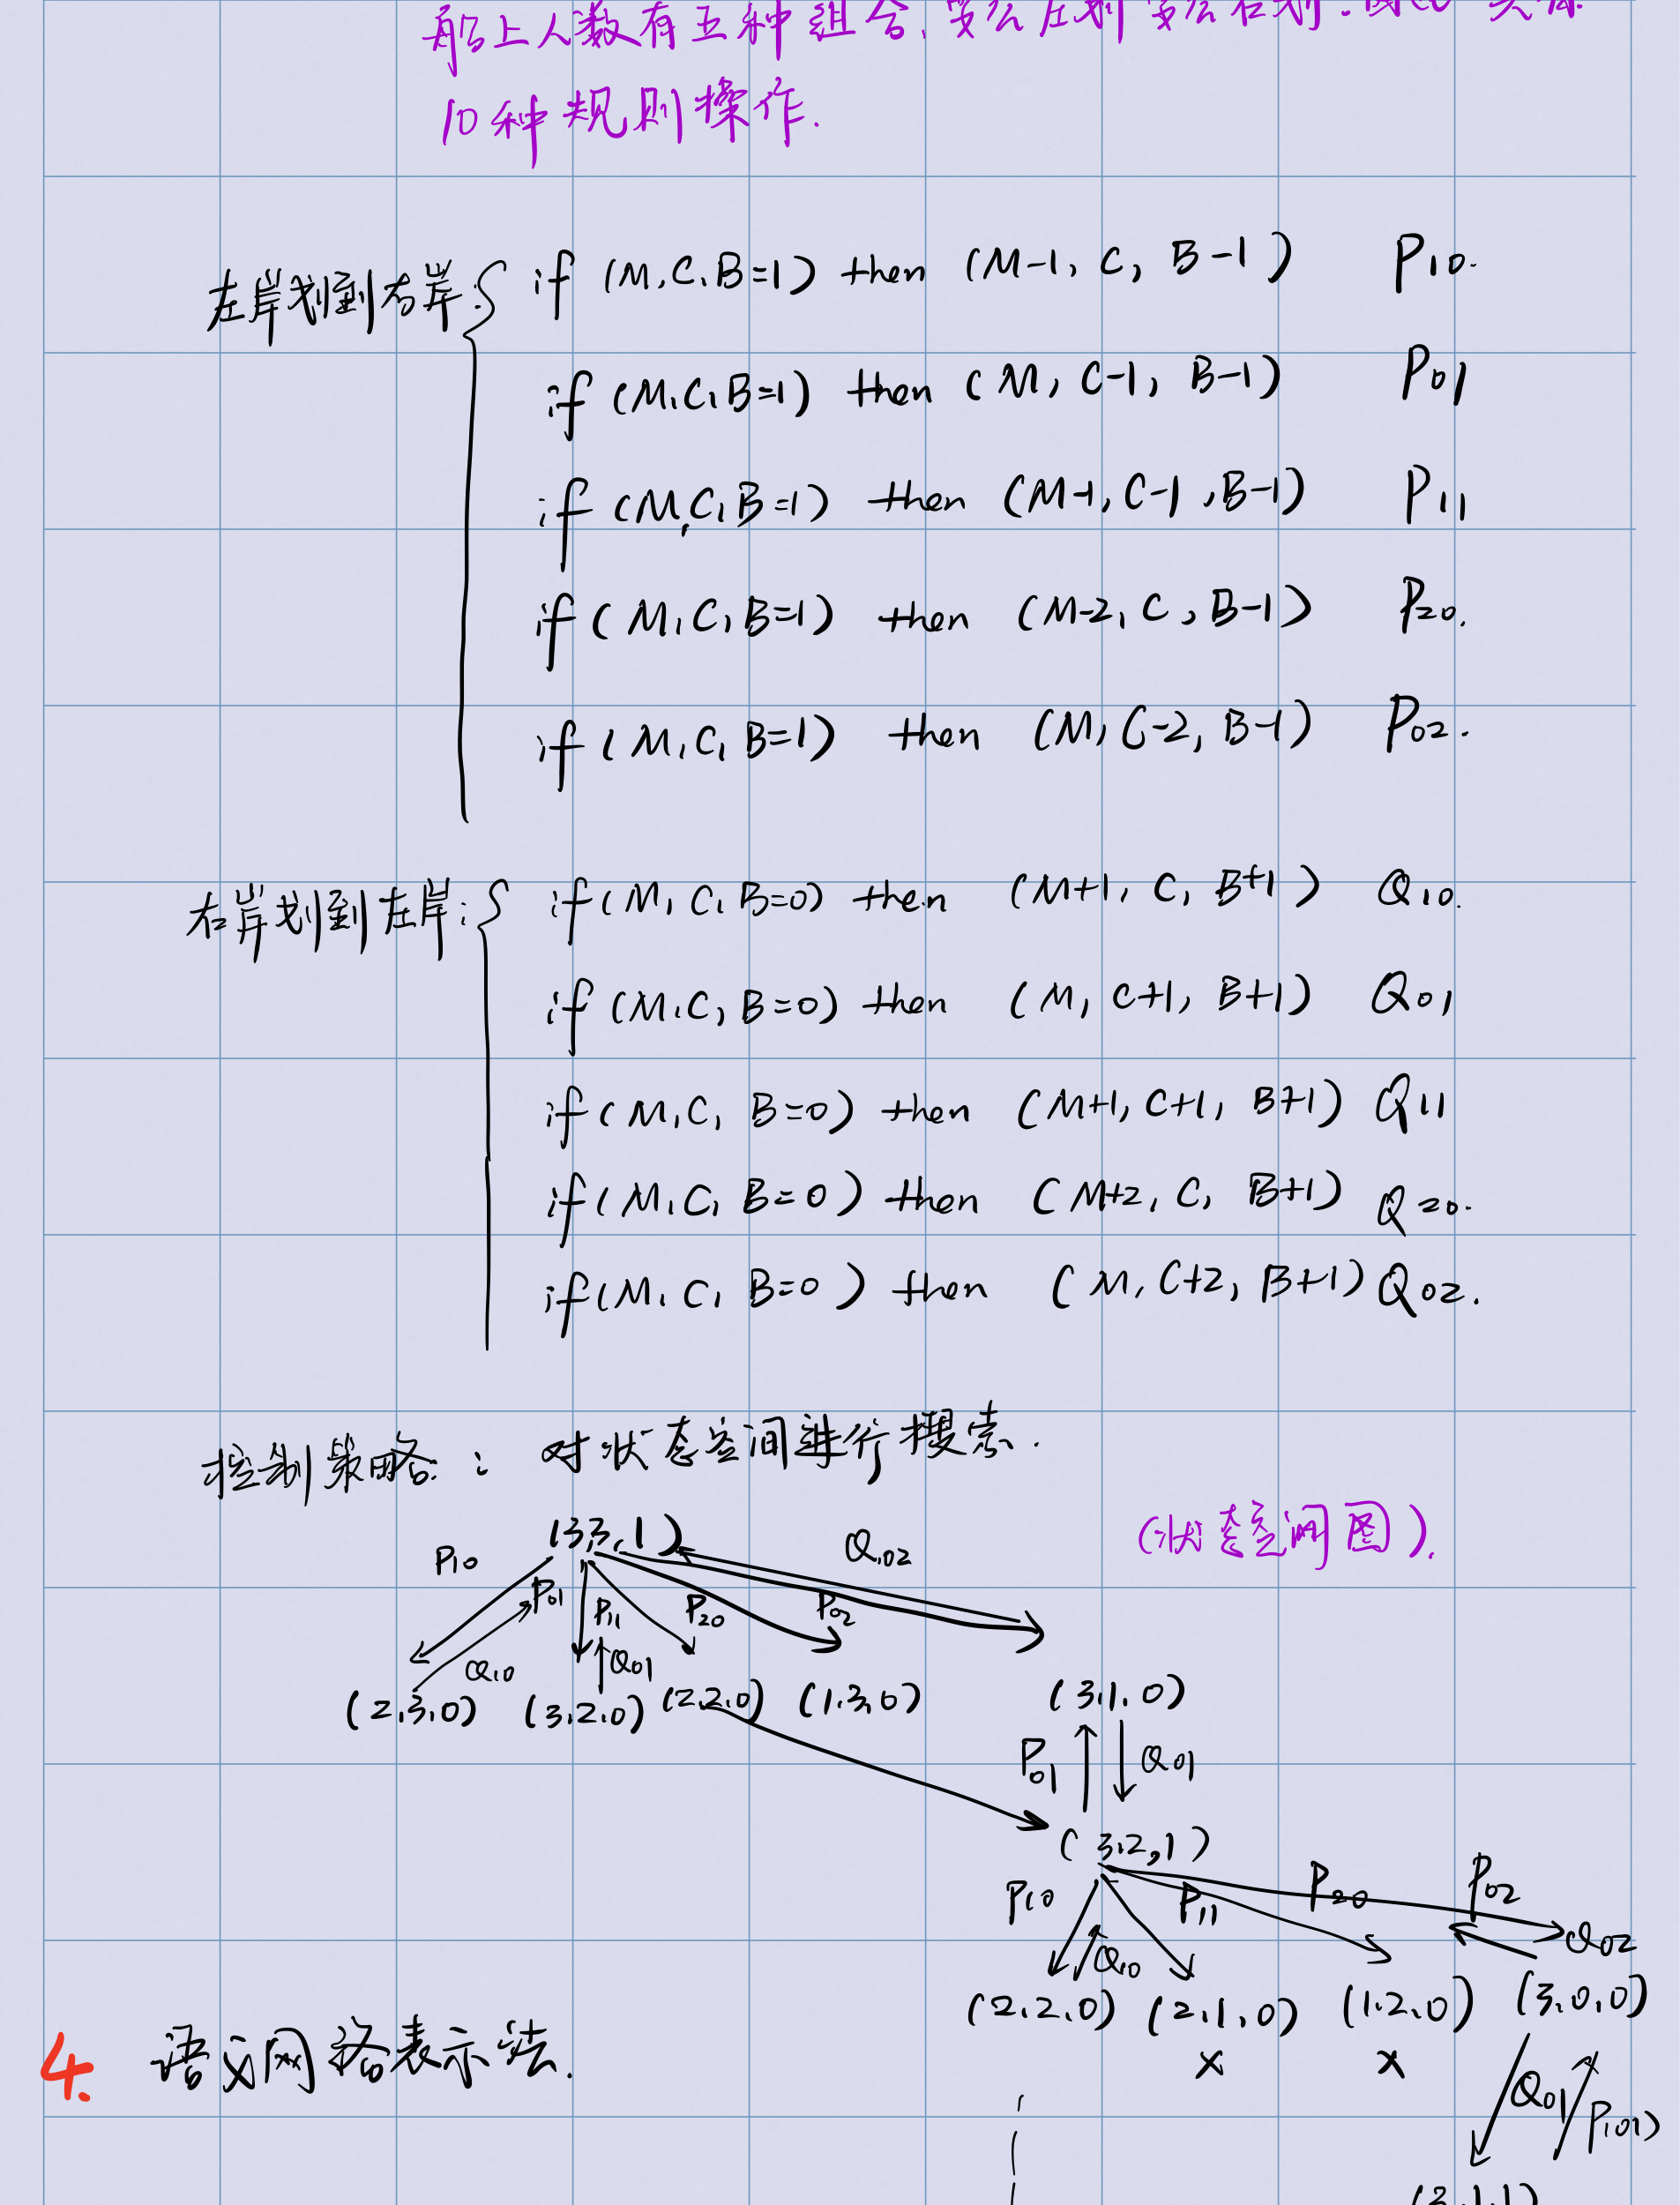 船上人数有五种组合,要么左划要么右划.因此 共有
10种规则操作.
左岸划到右岸: if (M,C,B=1) then (M-1, C, B-1) P10.
if (M,C,B=1) then (M, C-1, B-1) P01
if (M,C,B=1) then (M-1, C-1, B-1) P11
if (M,C,B=1) then (M-2, C, B-1) P20.
if (M,C,B=1) then (M, C-2, B-1) P02.
右岸划到左岸: if (M,C,B=0) then (M+1, C, B+1) Q10.
if (M,C,B=0) then (M, C+1, B+1) Q01
if (M,C,B=0) then (M+1, C+1, B+1) Q11
if (M,C,B=0) then (M+2, C, B+1) Q20.
if (M,C,B=0) then (M, C+2, B+1) Q02.
控制策略: 对状态空间进行搜索.
(状态空间图).
(3,3,1)
P10 P01 P11 P20 P02 Q02
Q10 Q01
(2,3,0) (3,2,0) (2,2,0) (1,3,0) (3,1,0)
P01 Q01
(3,2,1)
P10 P11 P20 P02
Q10 Q02
(2,2,0) (2,1,0) (1,2,0) (3,0,0)
× ×
4. 语义网络表示法.
Q01 P(01)
(3,1,1)